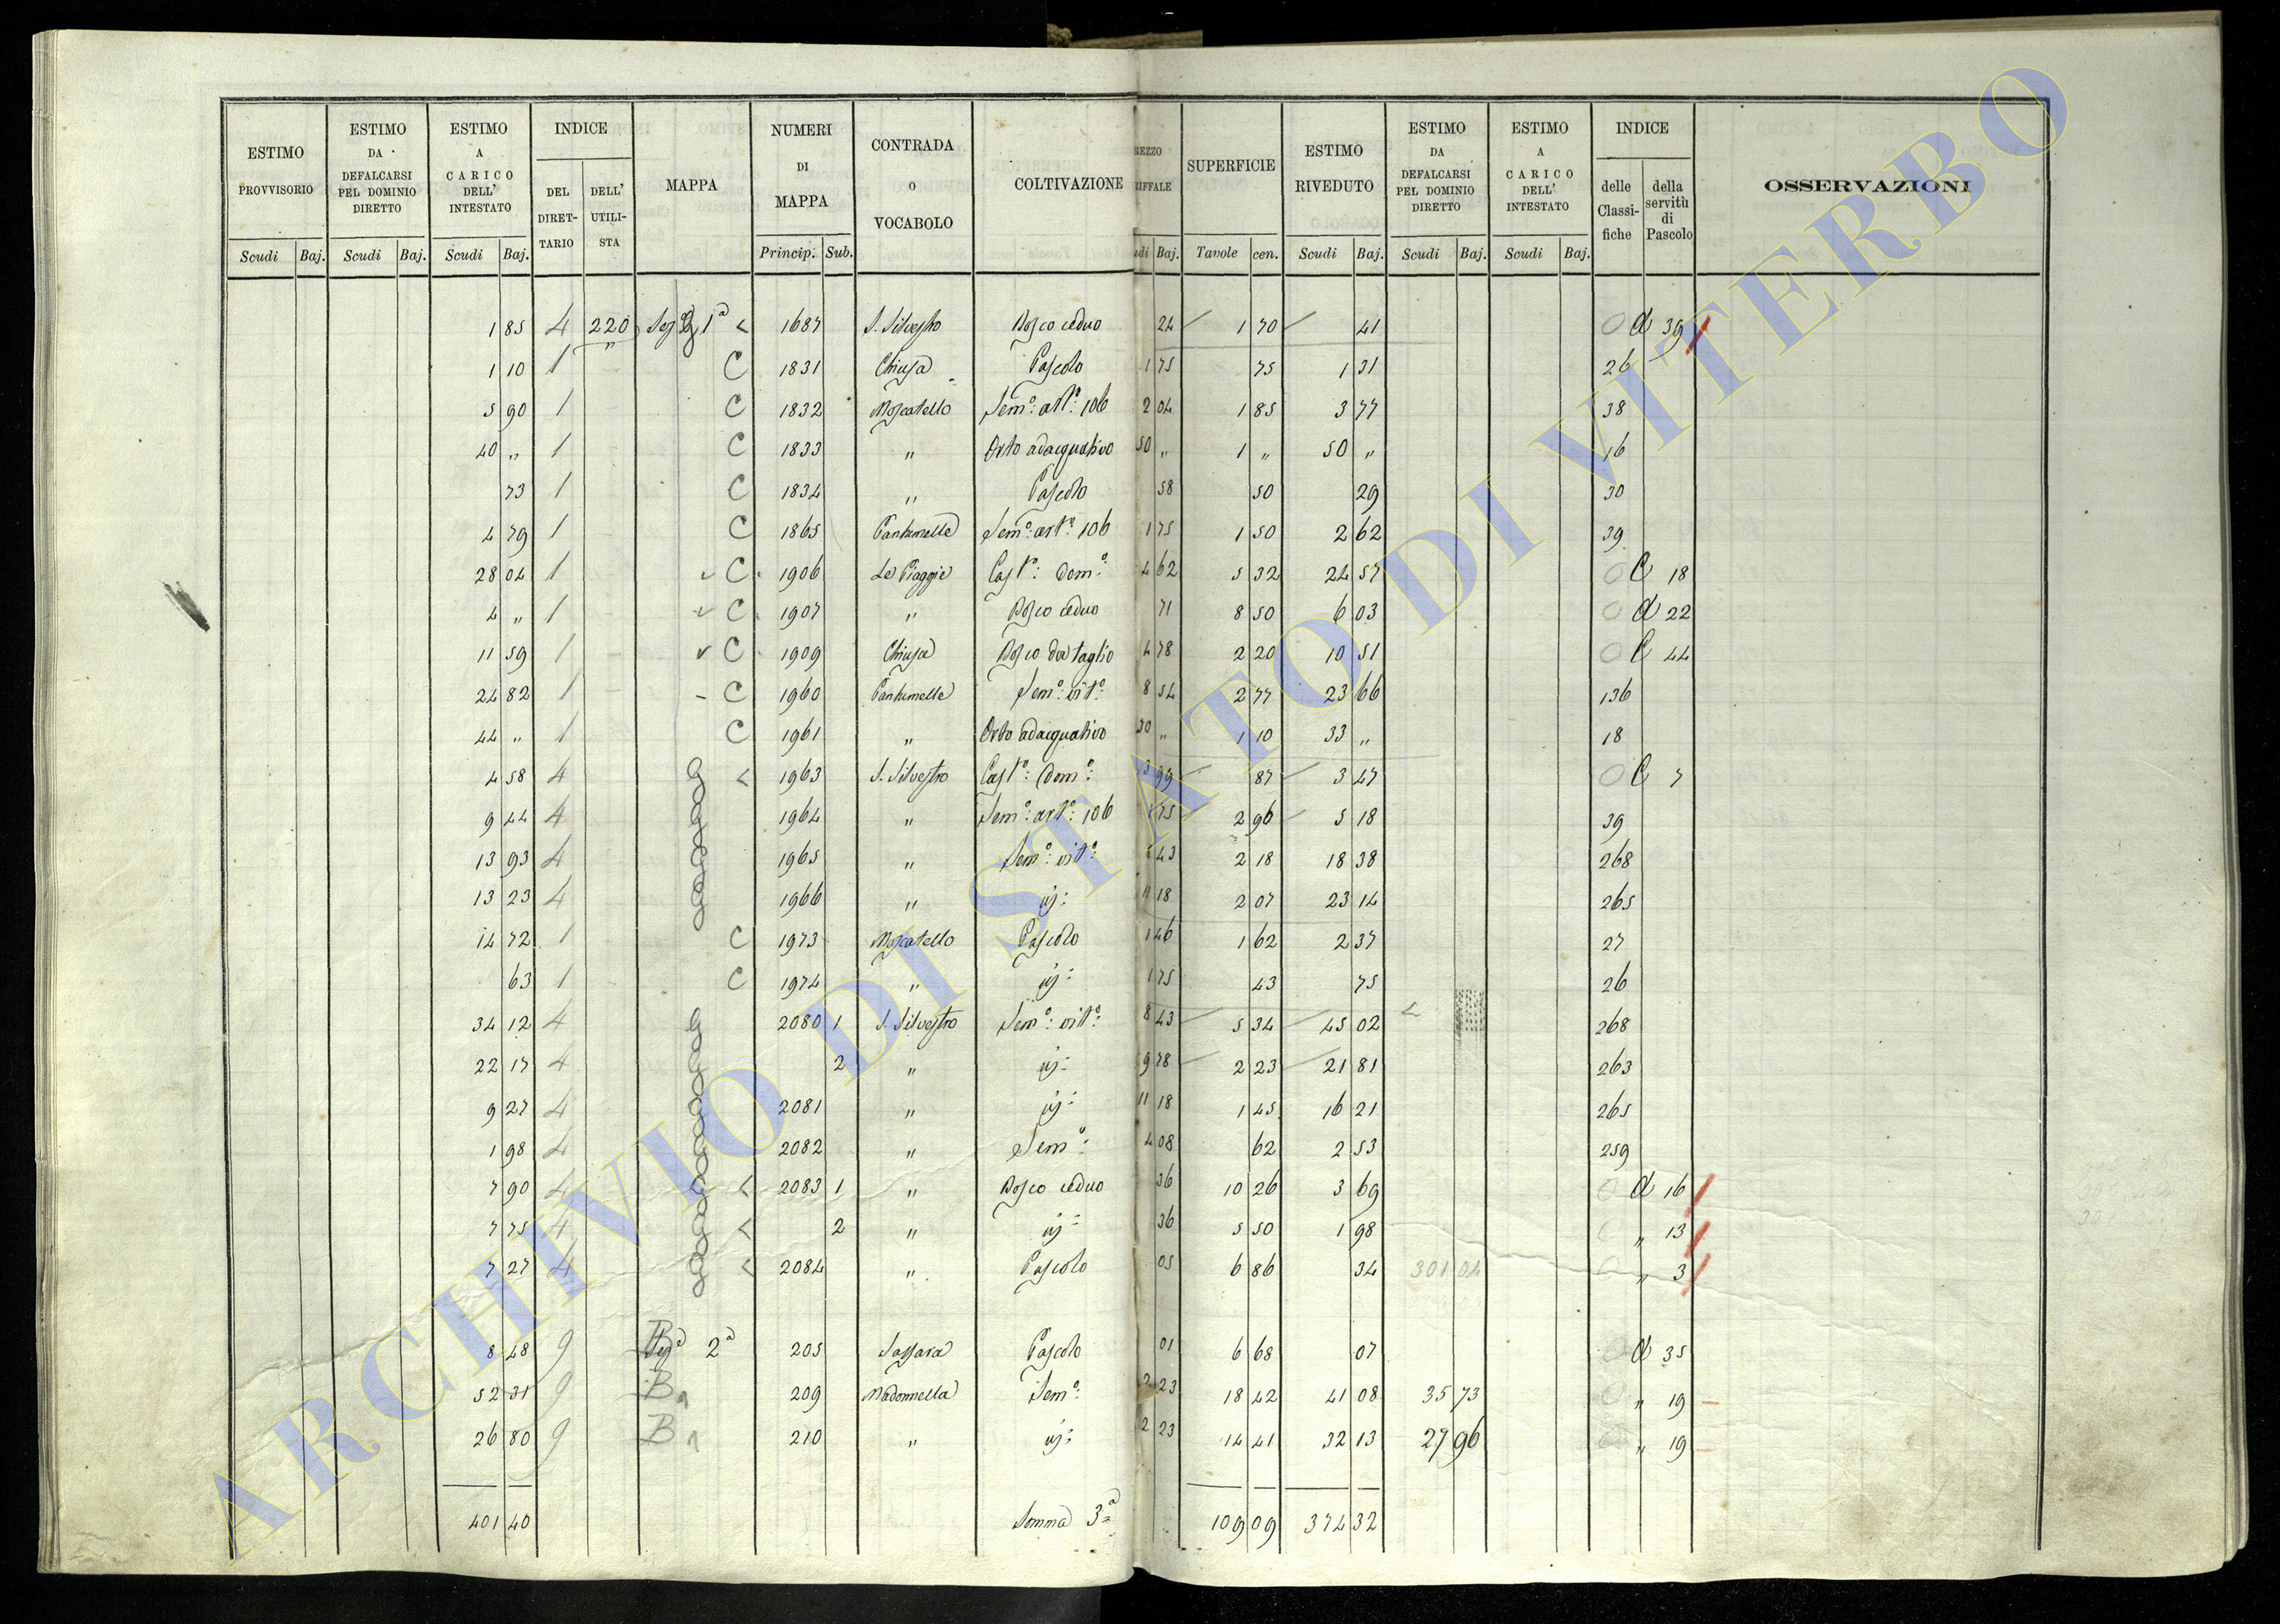 ESTIMO PROVVISORIO | ESTIMO DA DEFALCARSI PEL DOMINIO DIRETTO | ESTIMO A CARICO DELL' INTESTATO | INDICE | MAPPA | NUMERI DI MAPPA | CONTRADA o VOCABOLO | COLTIVAZIONE | REZZO RIFFALE | SUPERFICIE | ESTIMO RIVEDUTO | ESTIMO DA DEFALCARSI PEL DOMINIO DIRETTO | ESTIMO A CARICO DELL' INTESTATO | INDICE | OSSERVAZIONI
DEL DIRETTARIO | DELL' UTILISTA | delle Classifiche | della servitù di Pascolo
Scudi | Baj. | Scudi | Baj. | Scudi | Baj. | Princip. | Sub. | udi | Baj. | Tavole | cen. | Scudi | Baj. | Scudi | Baj. | Scudi | Baj.
1 85 | 4 | 220 | 1ª | 1687 | S. Silvestro | Bosco ceduo | 24 | 1 70 | 41 | d 39
1 10 | 1 | C | 1831 | Chiusa | Pascolo | 1 75 | 75 | 1 31 | 26
5 90 | 1 | C | 1832 | Moscatello | Sem.º art.º 106 | 2 04 | 1 85 | 3 77 | 38
40 " | 1 | C | 1833 | " | Orto adacquativo | 50 " | 1 " | 50 " | 16
73 | 1 | C | 1834 | " | Pascolo | 58 | 50 | 29 | 30
4 79 | 1 | C | 1865 | Pantanelle | Sem.º art.º 106 | 1 75 | 1 50 | 2 62 | 39
28 04 | 1 | C | 1906 | Le Piaggie | Cast.º dom.º | 4 62 | 5 32 | 24 57 | C 18
4 " | 1 | C | 1907 | " | Bosco ceduo | 71 | 8 50 | 6 03 | d 22
11 59 | 1 | C | 1909 | Chiusa | Bosco da taglio | 4 78 | 2 20 | 10 51 | C 44
24 82 | 1 | C | 1960 | Pantanelle | Sem.º vit.º | 8 54 | 2 77 | 23 66 | 136
44 " | 1 | C | 1961 | " | Orto adacquativo | 30 " | 1 10 | 33 " | 18
4 58 | 4 | 1963 | S. Silvestro | Cast.º dom.º | 3 99 | 87 | 3 47 | C 7
9 44 | 4 | 1964 | " | Sem.º art.º 106 | 1 75 | 2 96 | 5 18 | 39
13 93 | 4 | 1965 | " | Sem.º vit.º | 43 | 2 18 | 18 38 | 268
13 23 | 4 | 1966 | " | id: | 11 18 | 2 07 | 23 14 | 265
14 72 | 1 | C | 1973 | Moscatello | Pascolo | 1 46 | 1 62 | 2 37 | 27
63 | 1 | C | 1974 | " | id: | 1 75 | 43 | 75 | 26
34 12 | 4 | 2080 | 1 | S. Silvestro | Sem.º vit.º | 8 43 | 5 34 | 45 02 | 268
22 17 | 4 | 2 | " | id: | 9 78 | 2 23 | 21 81 | 263
9 27 | 4 | 2081 | " | id: | 11 18 | 1 45 | 16 21 | 265
1 98 | 4 | 2082 | " | Sem.º | 4 08 | 62 | 2 53 | 259
7 90 | 4 | 2083 | 1 | " | Bosco ceduo | 36 | 10 26 | 3 69 | d 16
7 75 | 4 | 2 | " | id: | 36 | 5 50 | 1 98 | " 13
7 27 | 4 | 2084 | " | Pascolo | 05 | 6 86 | 34 | 301 04 | " 3
8 48 | 9 | 2ª | 205 | Sassara | Pascolo | 01 | 6 68 | 07 | d 35
52 31 | 9 | B | 209 | Madonnella | Sem.º | 2 23 | 18 42 | 41 08 | 35 73 | " 19
26 80 | 9 | B | 210 | " | id: | 2 23 | 14 41 | 32 13 | 27 96 | " 19
401 40 | Somma 3ª | 109 09 | 374 32
ARCHIVIO DI STATO DI VITERBO